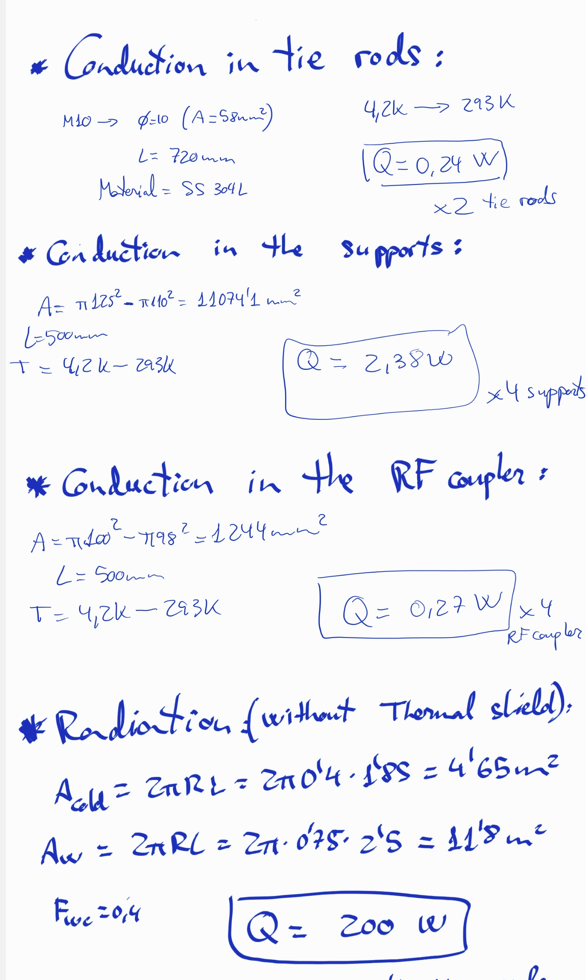 * Conduction in tie rods:
M10 → ϕ=10 (A=58mm²)
4,2K → 293K
L= 720mm
Q=0,24 W
Material = SS 304L
x2 tie rods
* Conduction in the supports:
A= π125² - π110² = 11074'1 mm²
L=500mm
T = 4,2K - 293K
Q = 2,38W
x4 supports
* Conduction in the RF coupler:
A=π100² - π98² = 1244mm²
L= 500mm
T= 4,2K - 293K
Q= 0,27 W
x4
RF coupler
* Radiation (without Thermal shield):
Acold = 2πRL = 2π0'4·1'85 = 4'65m²
Aw = 2πRL = 2π·0'75·2'5 = 11'8m²
Fwc=0,4
Q= 200 W